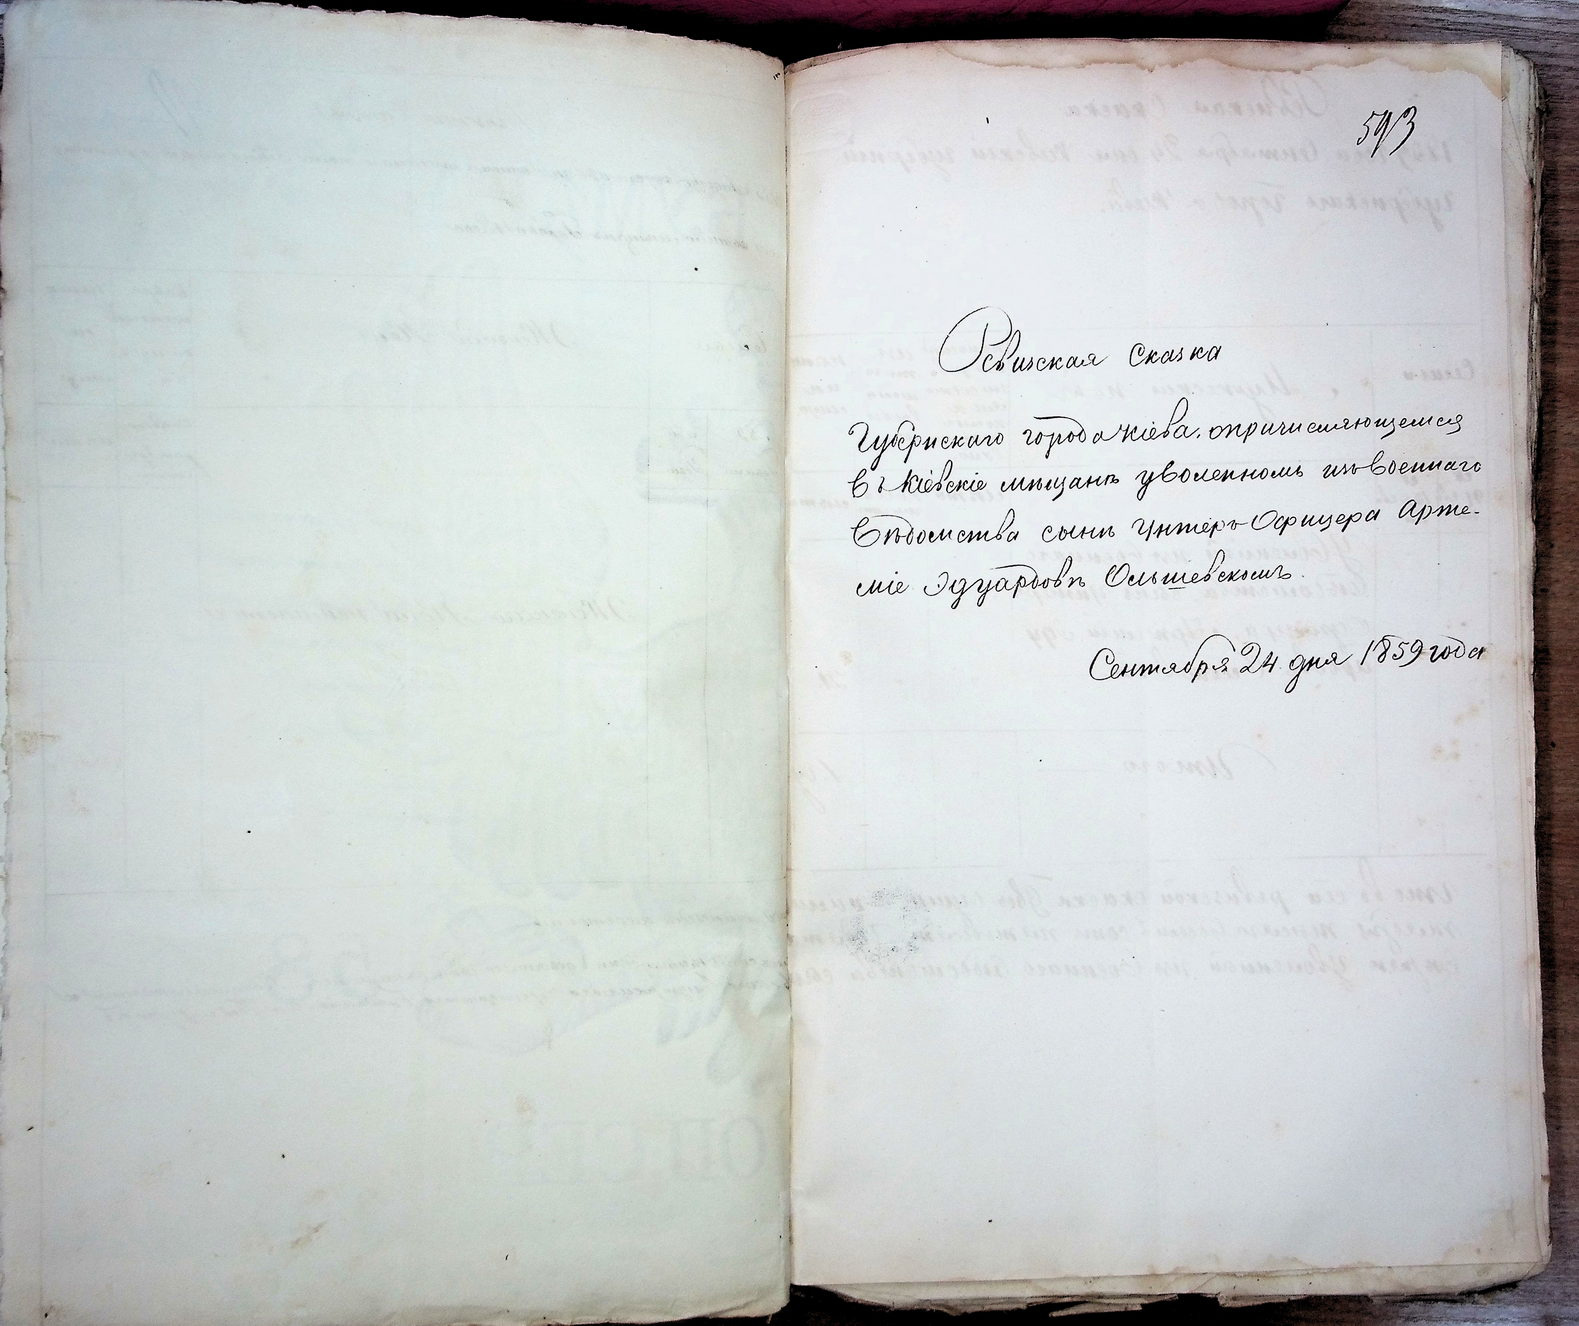 593
Ревизская Сказка
Губернскаго города Кіева. опричисляющемся
въ Кіевскіе мещане уволенномъ изъ военнаго
вѣдомства сынѣ Унтеръ-Офицера Арте-
міе Эдуардовѣ Ольшевскомъ.
Сентября 24 дня 1859 года